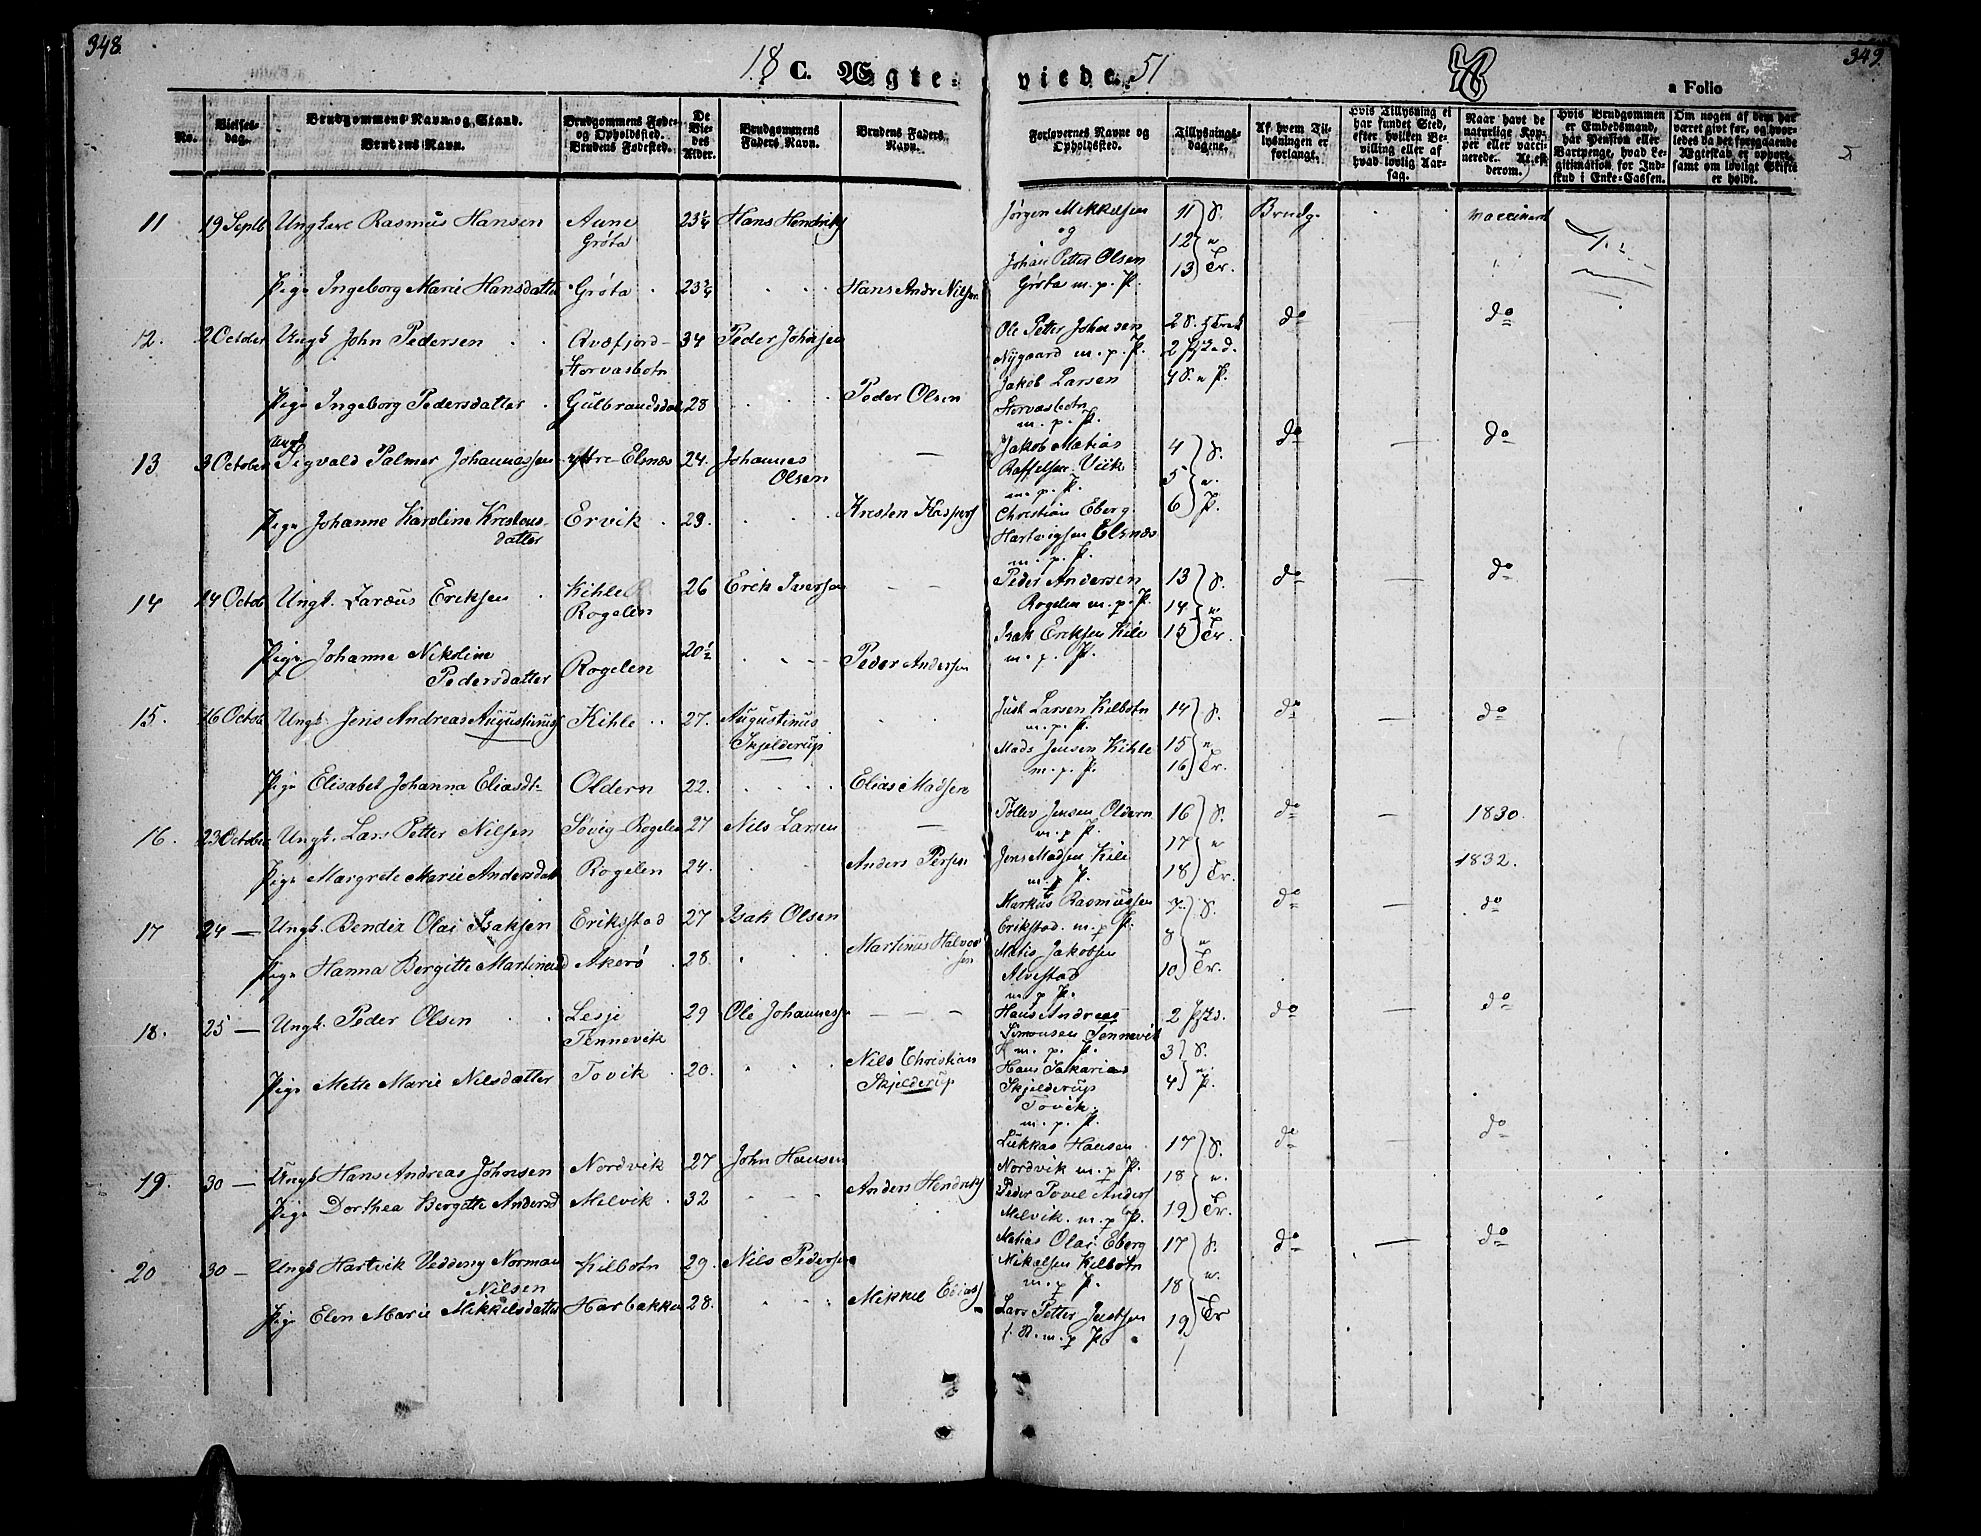 348.
18 C. Ægte-
viede. 51
a Folio
349.
No.
Vielses-
dag.
Brudgommens Navn og Stand.
Brudens Navn.
Brudgommens Føde-
og Opholdssted.
Brudens Fødested.
De
Vie-
des
Alder.
Brudgommens
Faders Navn.
Brudens Faders
Navn.
Forlovernes Navne og
Opholdssted.
Tillysnings-
dagene.
Af hvem Til-
lysningen er
forlangt.
Hvis Tillysning ei
har fundet Sted,
efter hvilken Be-
villing eller af
hvad lovlig Aar-
sag.
Naar havt de
naturlige Kop-
per eller vacci-
nerede.
Hvis Brudgommen
er Embedsmand,
har Pension eller
Vartpenge, hvad Le-
gitimation for Ind-
skud i Enke-Cassen.
Om nogen af dem har
været givt før, og hvor-
ledes da det foregaaende
Ægteskab er ophørt,
samt om lovligt Skifte
er holdt.
11 19 Septb Ungkarl Rasmus Hansen Aune 23¼ Hans Hendriks Jørgen Mikkelsen 11 S. Brudg. vaccineret
Grøta og 12 "
Johan Petter Olsen 13 Tr.
Pige Ingeborg Marie Hansdatter Grøta 23¼ Hans Andr Nilsen Grøta m. p. P.
12. 2 October Ungk John Pedersen Qvæfjord- 34 Peder Johnsen Ole Petter Johnsen do do
Storvasbotn Nygaard m. p. P.
Jakob Larsen 4 S. " P.
Pige Ingeborg Pedersdatter Gulbrandsdal 28 Peder Olsen Storvasbotn
m. p. P.
13 3 October Ungk Sigvald Palmer Johannassen ytre-Elsnæs 24. Johannes Olsen Jakob Matias 4 S. do do
Raffelsen Viik 5 "
m. p. P.
Pige Johanne Karoline Krestens- Ervik 29. Kresten Kaspers Christian Eberg 6 P.
datter Hartvigsen Elsnæs
m. p. P.
14 14 Octob Ungk. Zaræus Eriksen Kihle 26 Erik Iversen Peder Andersen 13 S. do do
Rogelen Rogelen m. p. P. 14 "
Isak Eriksen Kile 15 Tr.
Pige Johanna Nikoline 20½ Peder Andersen m. p. P.
Pedersdatter Rogelen
15. 16 Octob Ungk. Jens Andreas Augustinuss Kihle 27. Augustinus Just Larsen Kilbotn 14 S. do do
Skjelderup m. p. P.
Mads Jensen Kihle 15 "
m. p. P. 16 Tr.
Pige Elisabet Johanna Eliasdt. Oldern 22. Elias Madsen
16. 23 October Ungk. Lars Petter Nilsen Søvig-Rogelen 27 Nils Larsen Tollev Jensen Oldern 16 S. do 1830.
m. p. P. 17 "
Pige Margrete Marie Andersdatt Rogelen 24. Anders Persen Jens Madsen Kile 18 Tr. 1832.
m. p. P.
17 24 — Ungk. Bendix Olai Isaksen Erikstad 27 Isak Olsen Markus Rasmussen 7 S. do do
Erikstad. m. p. P. 8 "
Pige Hanna Bergitte Martinusd Akerø 28. Martinus Halvorsen Matis Jakobsen 10 Tr.
Alvestad
m. p. P.
18. 25 — Ungk. Peder Olsen Lesje 29 Ole Johanness Hans Andreas do do
Tennevik Simonsen Tennevik
m. p. P. 3 S.
Pige Mette Marie Nilsdatter Tovik 20. Nils Christian Hans Sakarias 4 P.
Skjelderup Skjelderup
Tovik.
m. p. P.
19. 30 — Ungk Hans Andreas Johnsen Nordvik 27 John Hansen Lukkas Hansen 17 S. do do
Nordvik m. p. P. 18 "
Pige Dorthea Bergitte Andersd Melvik 32 Anders Hendriks Peder Povel Anders 19 Tr.
Melvik. m. p. P.
20 30 — Ungk Hartvik Vedding Norman Kilbotn 29. Nils Pedersen Matias Olai Eberg 17 S. do do
Nilsen Mikalsen Kilbotn 18 "
m. p. P.
Pige Elen Marie Mikkelsdatter Harbakken 28. Mikkel Eliass Lars Petter Justsen 19 Tr
m. p. P.